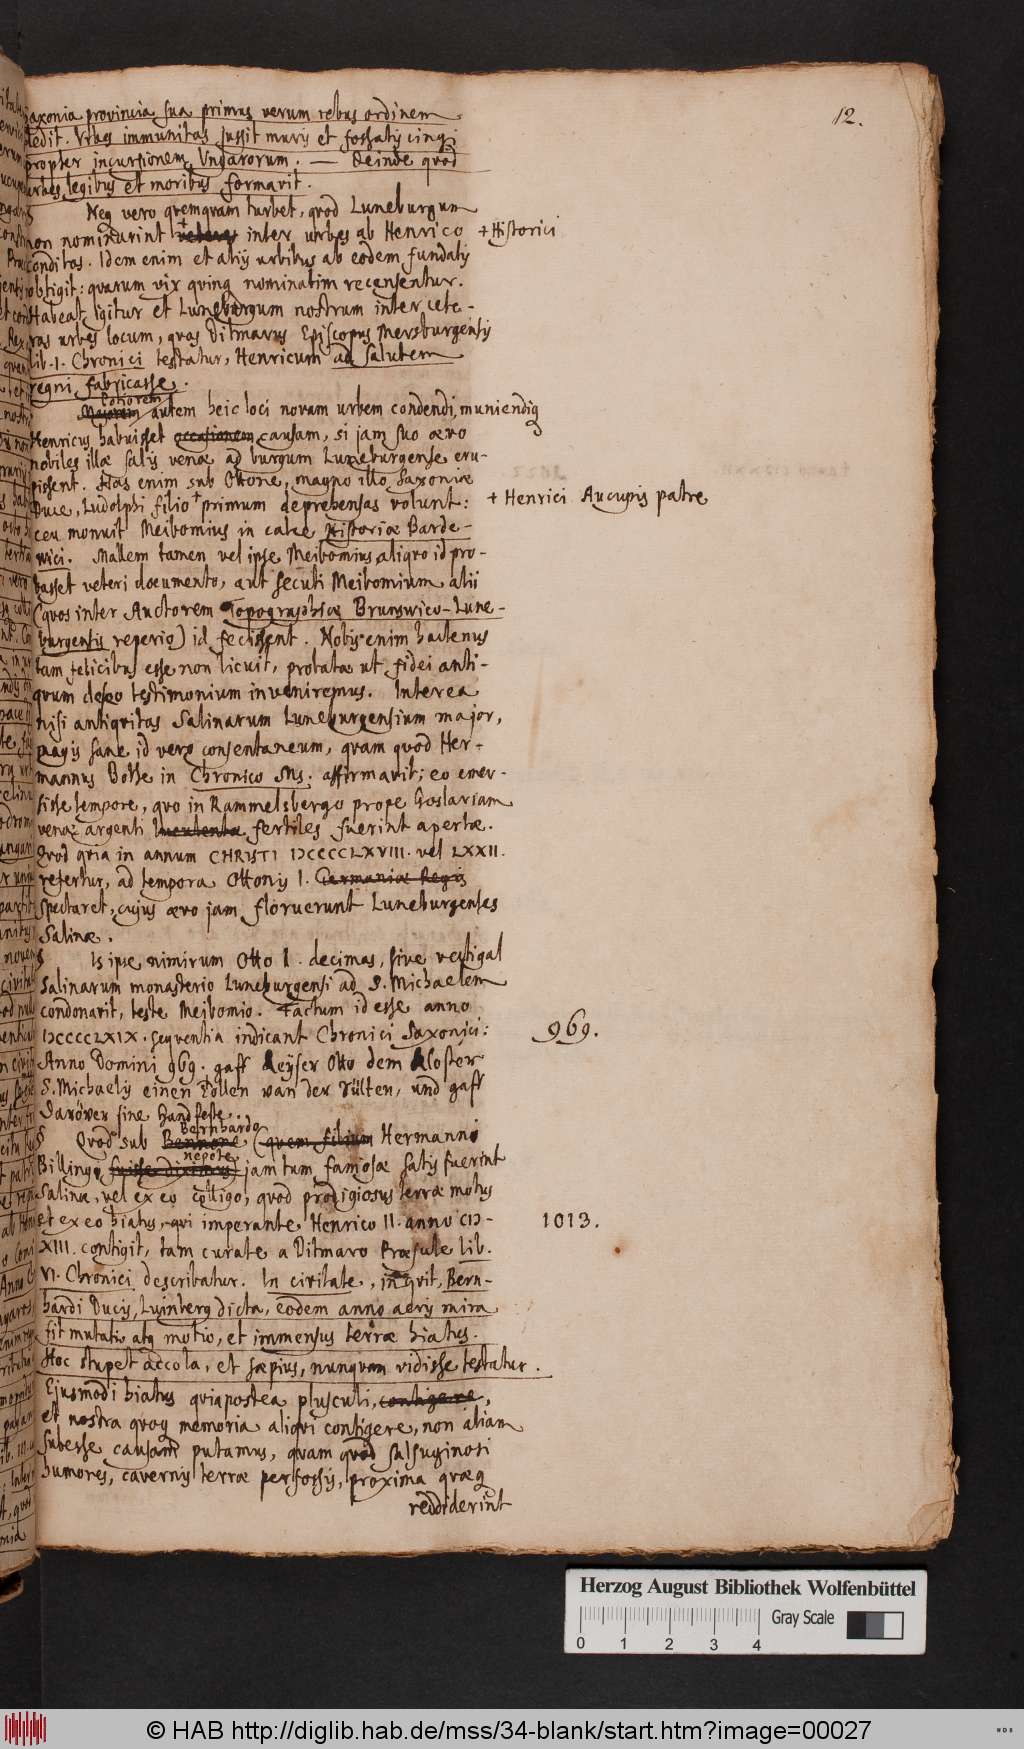 12.
Saxonia provincia sua primus verum rebus ordinem
dedit. Vrbes immunitas jussit muris et fossatis cingi
propter incursionem Vngarorum. — Deinde quod
urbes legibus et moribus formavit.
§ Neq vero quemquam turbet, quod Luneburgum
non nominârint + veteres inter urbes ab Henrico + Historici
conditas. Idem enim et aliis urbibus ab eodem fundatis
obtigit: quarum vix quinq nominatim recensentur.
Habeat igitur et Luneburgum nostrum inter cete-
ras urbes locum, quas Ditmarus Episcopus Mersburgensis
lib. I. Chronici testatur, Henricum ad salutem
regni fabricasse.
Potiorem
Majorem autem heic loci novam urbem condendi, muniendiq
Henricus habuisset occasionem causam, si jam suo ævo
nobiles illæ salis venæ ad burgum Luneburgense eru-
pissent. Has enim sub Ottone, magno illo Saxoniæ
Duce, Ludolphi filio + primum deprehensas volunt: + Henrici Aucupis patre
ceu monuit Meibomius in calce Historiæ Barde-
wici. Mallem tamen vel ipse Meibomius aliquo id pro-
basset veteri documento, aut secuti Meibomium alii
(quos inter Auctorem Topographiæ Brunswico-Lune-
burgensis reperio) id fecissent. Nobis enim hactenus
tam felicibus esse non licuit, probatæ ut fidei anti-
quum de eo testimonium inveniremus. Interea
nisi antiquitas Salinarum Luneburgensium major,
magis sane id vero consentaneum, quam quod Her-
mannus Bothe in Chronico Ms. affirmavit; eo emer-
sisse tempore, quo in Rammelsbergo prope Goslariam
venæ argenti luculentæ fertiles fuerint apertæ.
Quod quia in annum CHRISTI IↃCCCCLXVIII. vel LXXII.
refertur, ad tempora Ottonis I. Germaniæ Regis
spectaret, cujus ævo jam floruerunt Luneburgenses
Salinæ.
§ Is ipse nimirum Otto I. decimas, sive vectigal
Salinarum monasterio Luneburgensi ad S. Michaelem
condonavit, teste Meibomio. Factum id esse anno
IↃCCCCLXIX. sequentia indicant Chronici Saxonici: 969.
Anno Domini 969. gaff Keyser Otto dem Kloster
S. Michaelis einen Tollen van der Sülten, und gaff
Daröver sine Handfeste.
Bernhardo
§ Quod sub Bennone (quem filium Hermanni
nepote
Billingo fuisse diximus) jam tum famosæ satis fuerint
Salinæ, vel ex eo colligo, quod prodigiosus terræ motus
et ex eo hiatus, qui imperante Henrico II. anno CIↃ- 1013.
XIII. contigit, tam curate a Ditmaro Præsule lib.
VI. Chronici describatur. In civitate, inquit, Bern-
hardi Ducis, Luinberg dicta, eodem anno aeris mira
fit mutatio atq motio, et immensus terræ hiatus.
Hoc stupet accola, et sæpius, nunquam vidisse testatur.
Ejusmodi hiatus quia postea plusculi, contigere,
et nostra quoq memoria aliqui contigere, non aliam
subesse causam putamus, quam quod salsuginosi
humores, cavernis terræ perfossis, proxima quæq
reddiderint
Herzog August Bibliothek Wolfenbüttel
Gray Scale
0 1 2 3 4
© HAB http://diglib.hab.de/mss/34-blank/start.htm?image=00027
WDB